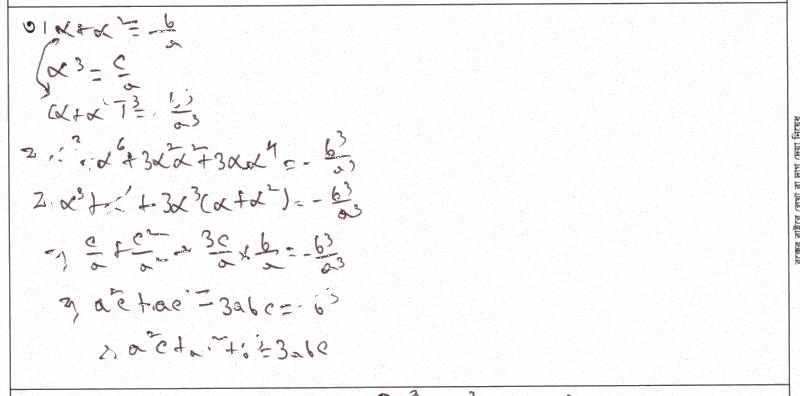 ৩। α + α² = -b/a
α³ = c/a
(α + α²)³ = - b³/a³
α⁶ + 3α²α² + 3αα⁴ = - b³/a³
α³ + + 3α³(α + α²) = - b³/a³
⇒ c/a + c²/a² - 3c/a × b/a = - b³/a³
⇒ a²c + ac² - 3abc = - b³
∴ a²c + a + b³ = 3abc